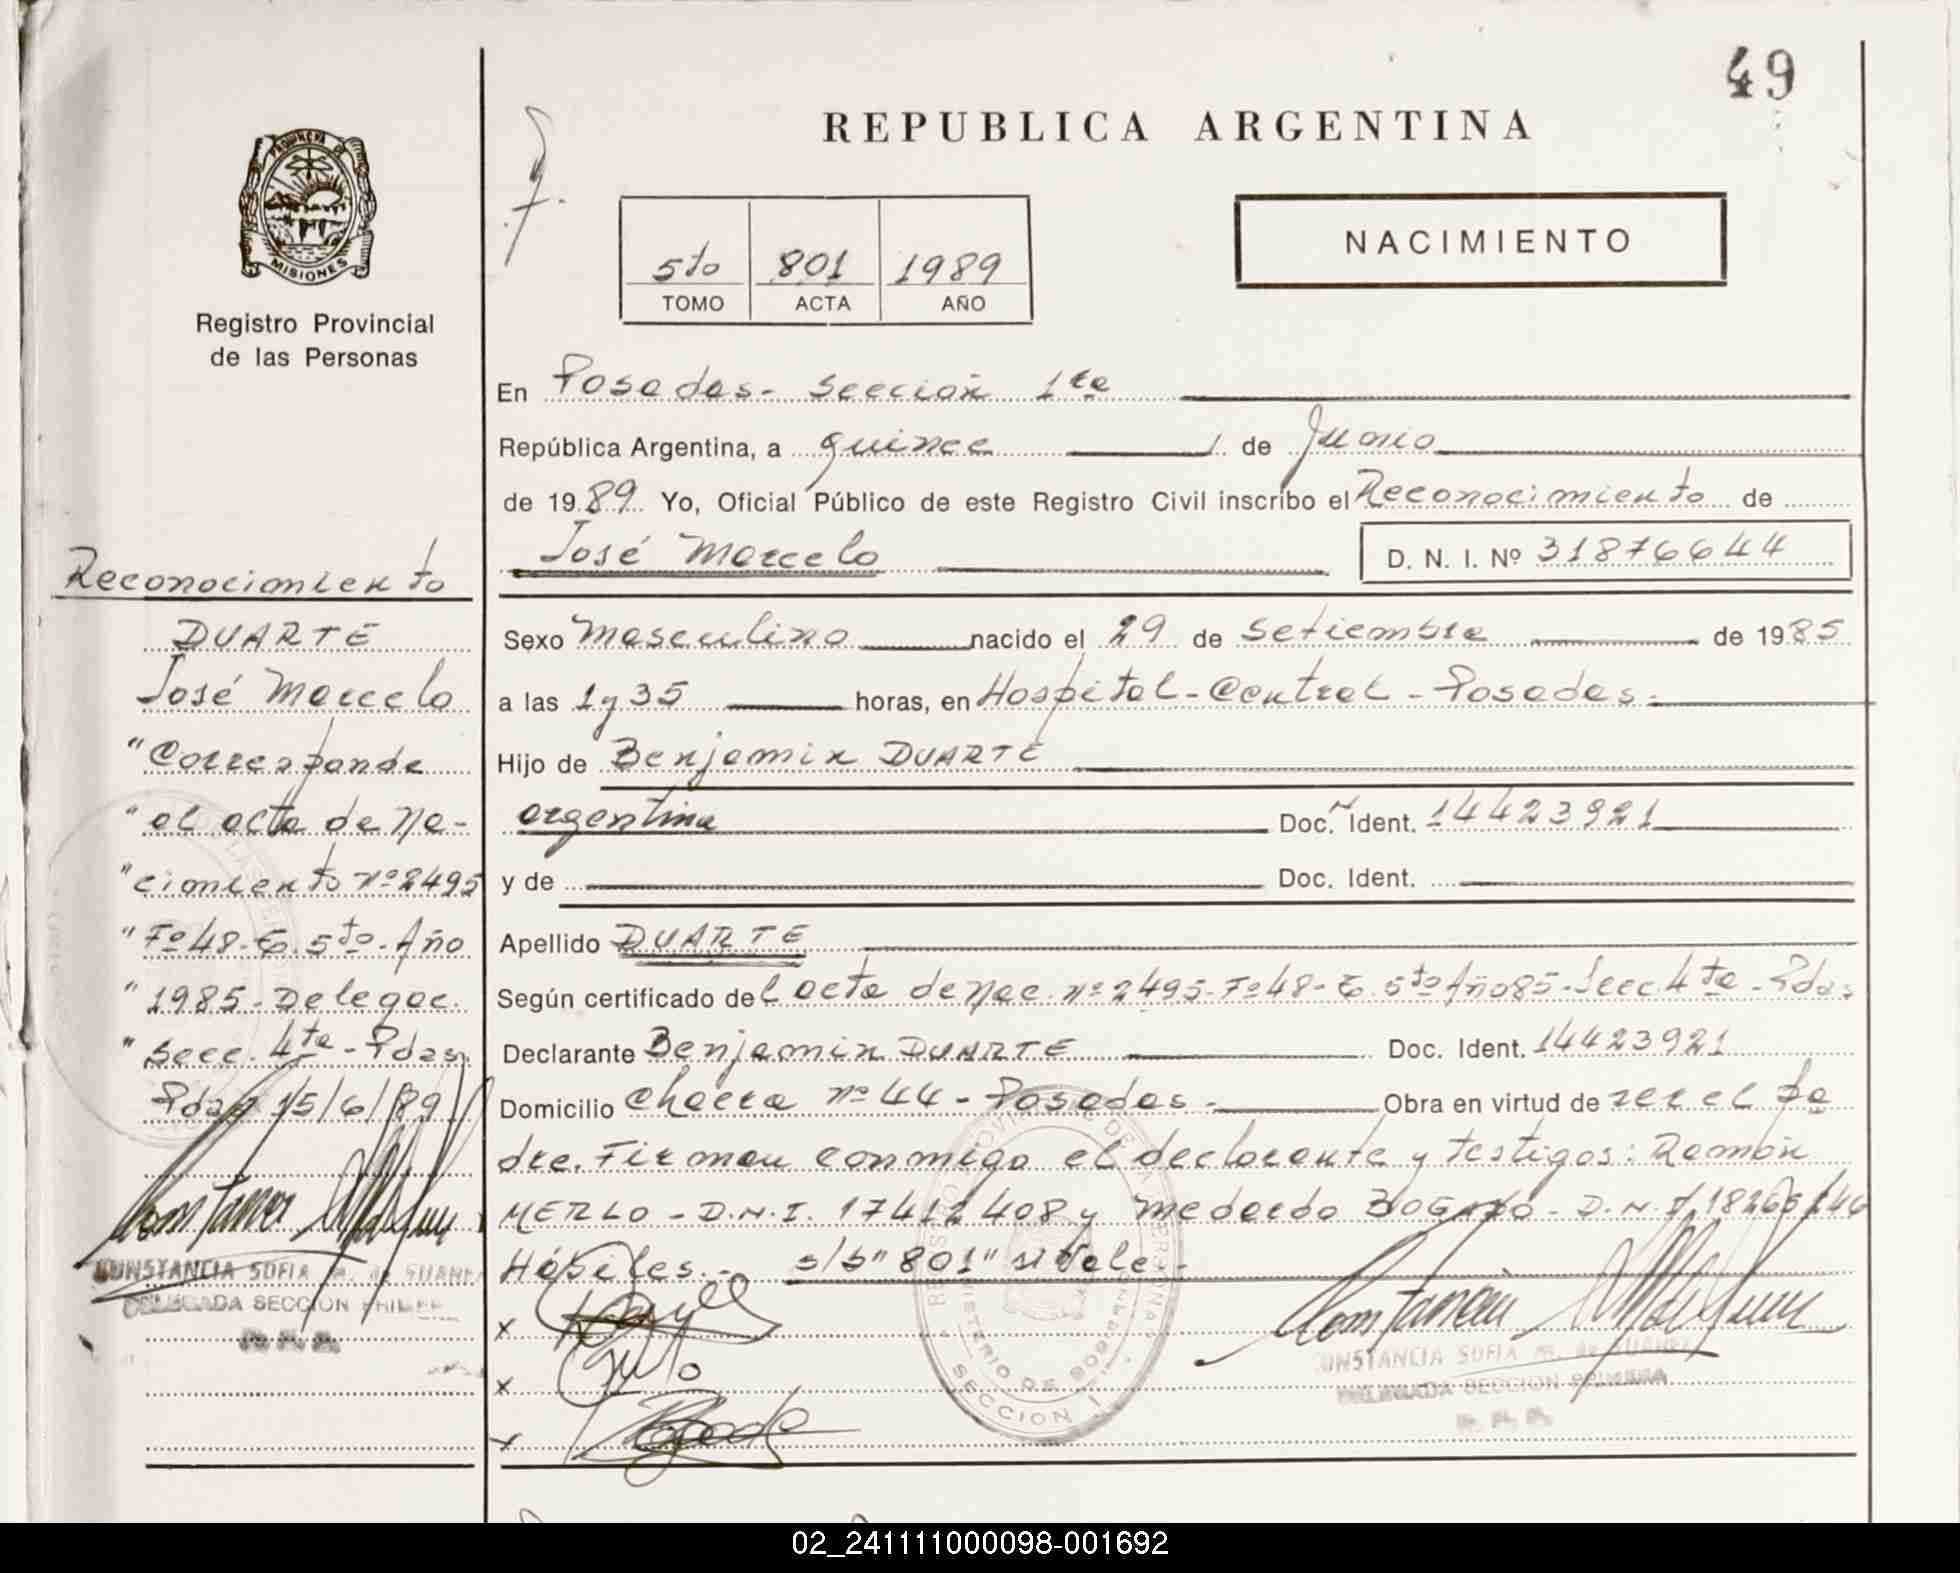 49
REPUBLICA ARGENTINA
PROVINCIA DE
MISIONES
Registro Provincial
de las Personas
5to 801 1989
TOMO ACTA AÑO
NACIMIENTO
En Posadas- Sección 1ra
República Argentina, a quince de Junio
de 1989. Yo, Oficial Público de este Registro Civil inscribo el Reconocimiento de
José Marcelo D. N. I. Nº 31876644
Sexo Masculino nacido el 29 de Setiembre de 1985
a las 1y35 horas, en Hospital-Central-Posadas.-
Hijo de Benjamin DUARTE
argentina Doc. Ident. 14423921
y de Doc. Ident.
Apellido DUARTE
Según certificado del acta de Nac. nº 2495-Fº48-T. 5to Año85-Secc. 4ta-Pdas
Declarante Benjamin DUARTE Doc. Ident. 14423921
Domicilio Chacra nº 44-Posadas- Obra en virtud de ser el pa
dre. Firman conmigo el declarante y testigos: Ramón
MERLO-D.N.I. 17412408 y Medardo BOGADO-D.N.I.
Hábiles.- s/b "801" si Vale.-
x
x
x
CONSTANCIA SOFIA M. de SUAREZ
DELEGADA SECCION PRIMERA
SECCION 1
Reconocimiento
DUARTE
José Marcelo
"Corresponde
"al acta de Na-
"cimiento Nº2495
"Fº48-T. 5to-Año
"1985-Delegac.
"Secc. 4ta-Pdas.
Pdas 15/6/89
CONSTANCIA SOFIA M. de SUAREZ
DELEGADA SECCION PRIMERA
R. P. P.
02_241111000098-001692